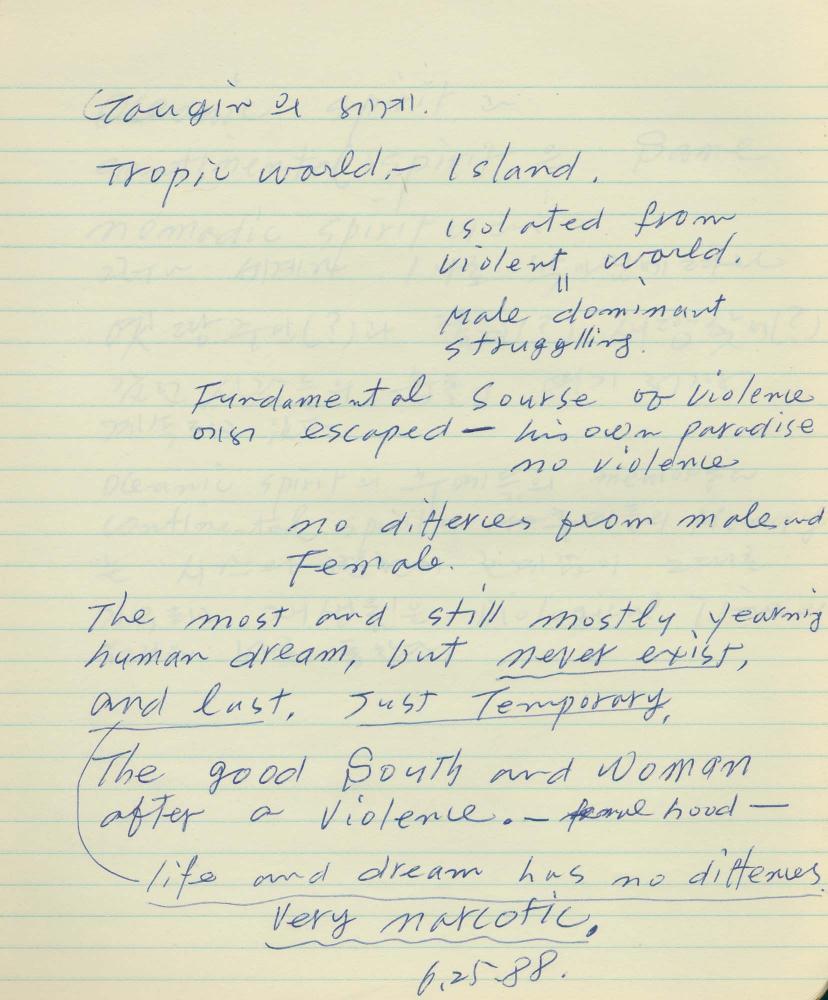 Gaugin 의 세계.
Tropic world. - Island.
isolated from
violent world.
"
Male dominant
strugglling.
Fundamental Sourse of Violence
에서 escaped - his own paradise
no violence
no differces from male and
Female.
The most and still mostly yearnig
human dream, but never exist,
and last. Just Temporary,
The good South and Woman
after a Violence. - femal hood -
life and dream has no differces.
Very narcotic.
6.25.88.